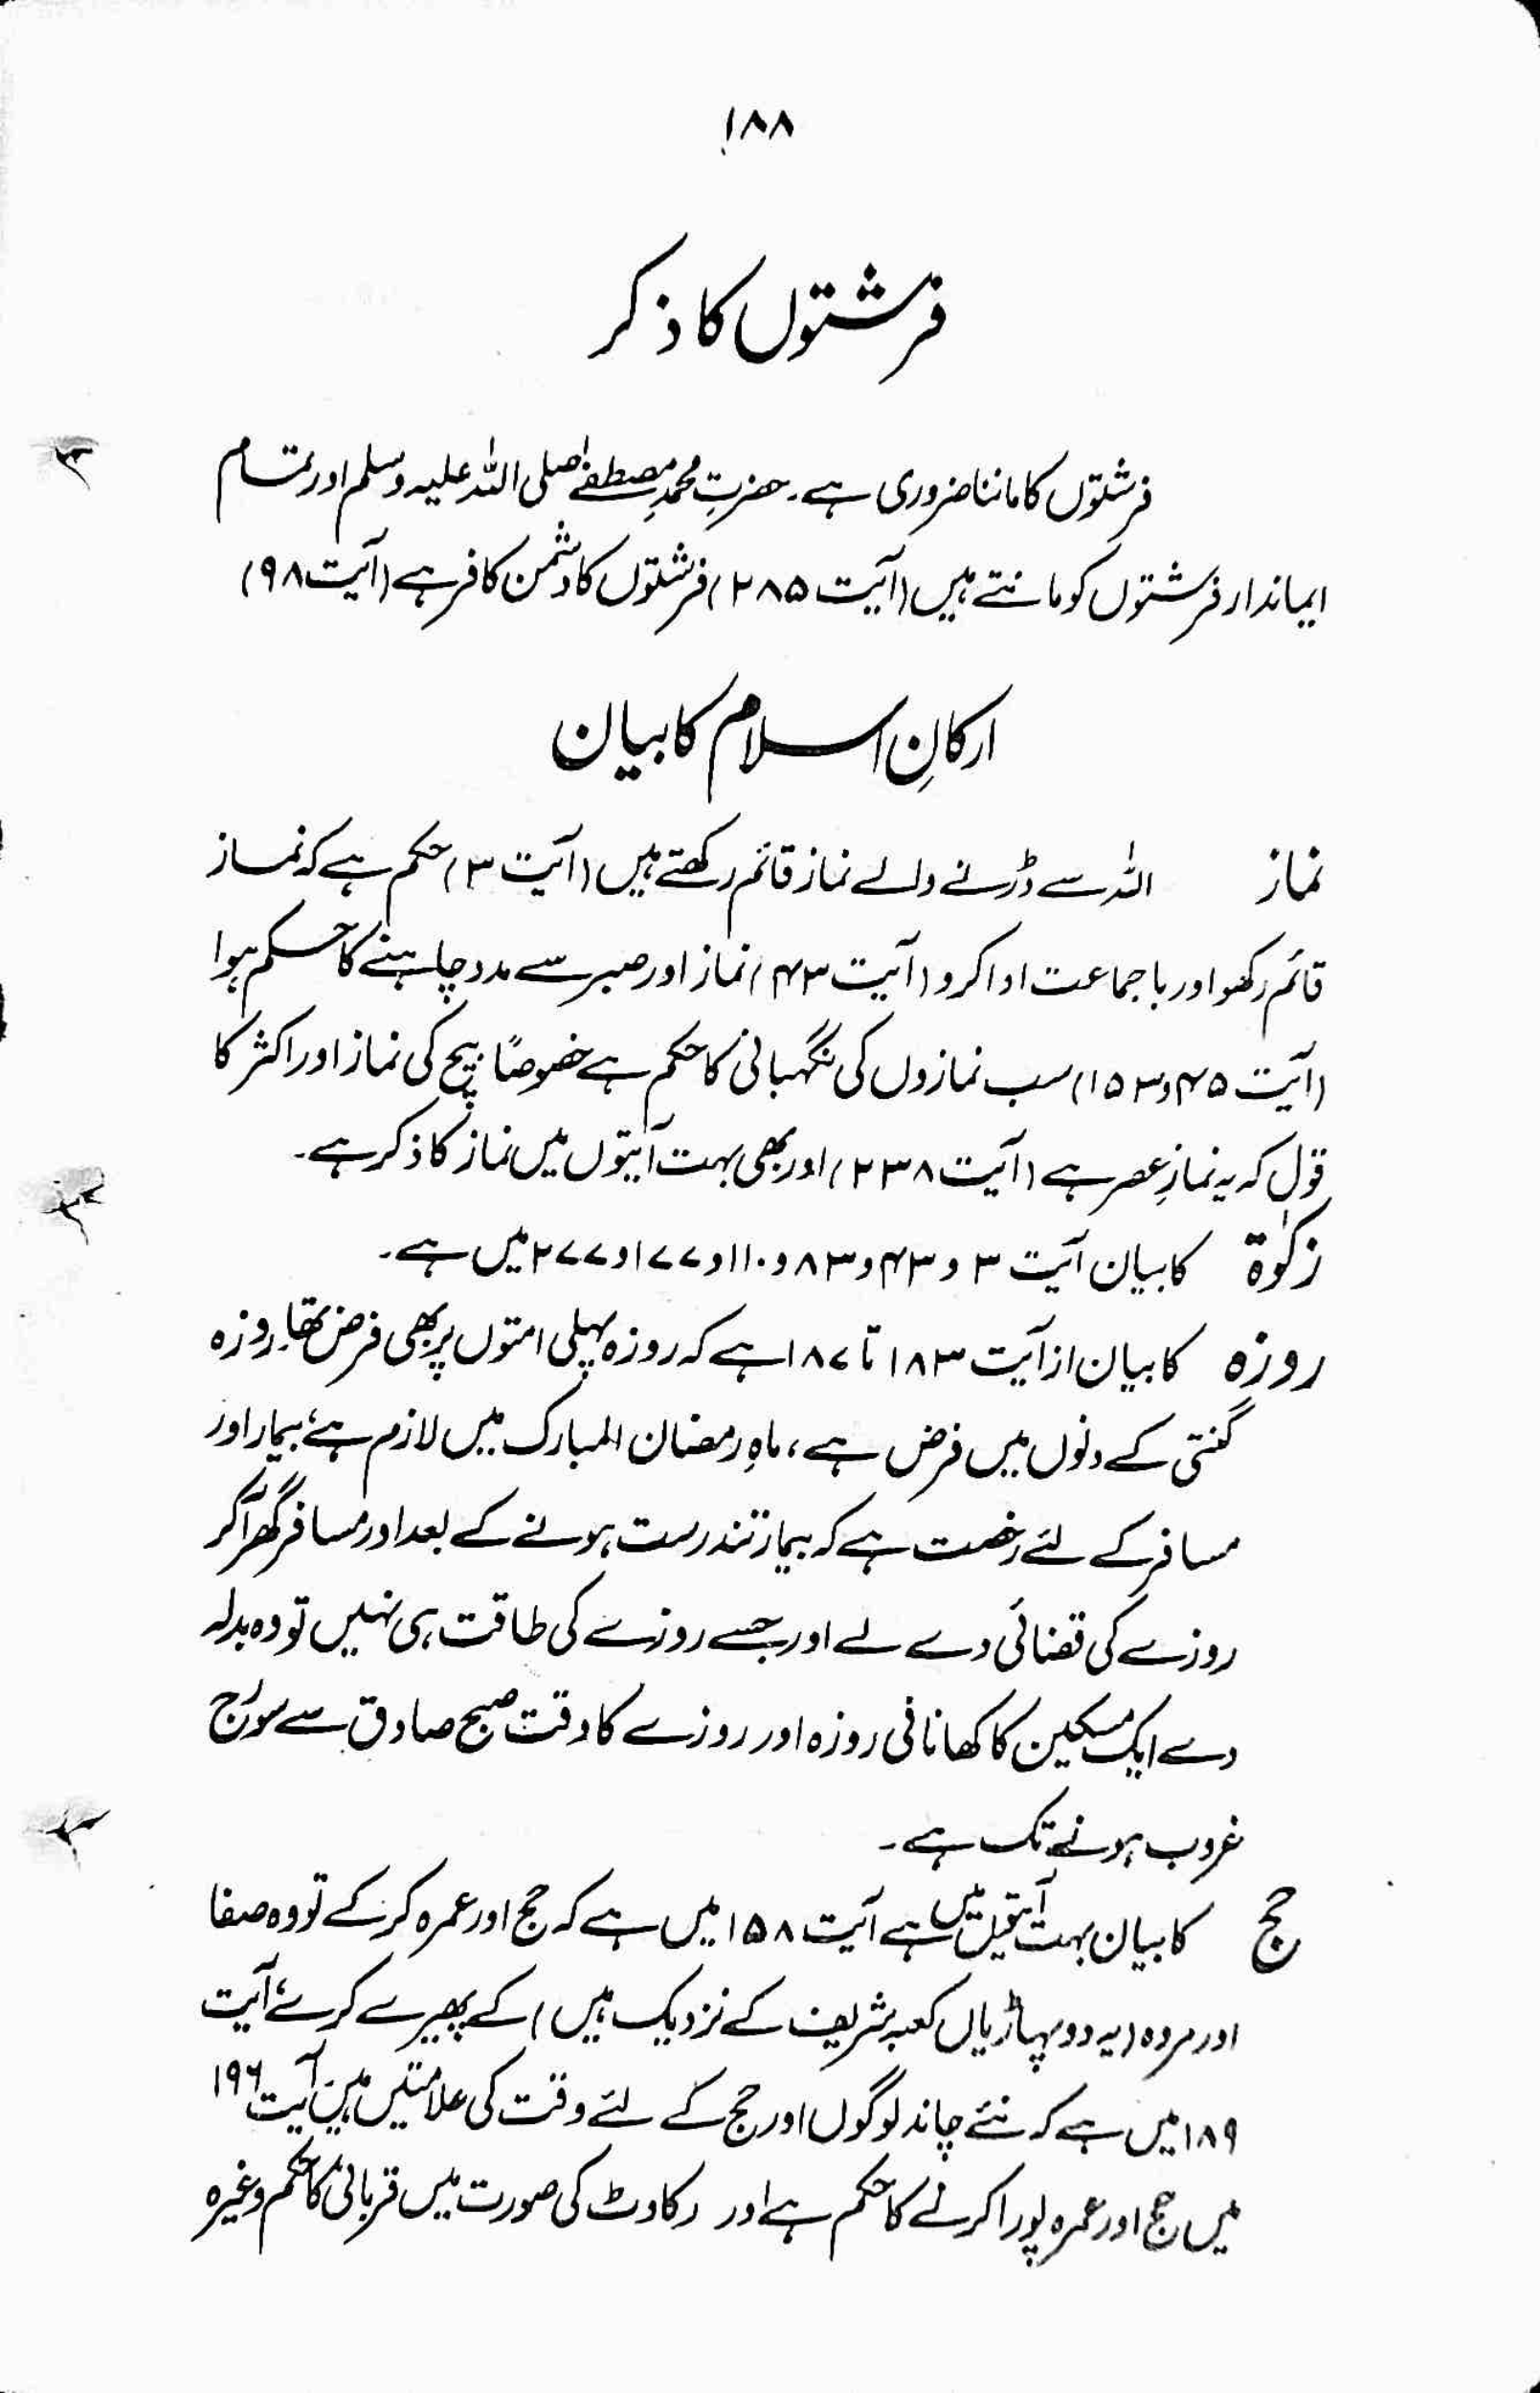 ۱۸۸
فرشتوں کا ذکر
فرشتوں کا ماننا ضروری ہے۔ حضرتِ محمدِ مصطفےٰ صلی اللہ علیہ وسلم اور تمام
ایماندار فرشتوں کو مانتے ہیں (آیت ۲۸۵) فرشتوں کا دشمن کافر ہے (آیت ۹۸)
ارکانِ اسلام کا بیان
نماز اللہ سے ڈرنے والے نماز قائم رکھتے ہیں (آیت ۳) حکم ہے کہ نماز
قائم رکھو اور باجماعت ادا کرو (آیت ۴۳) نماز اور صبر سے مدد چاہنے کا حکم ہوا
(آیت ۴۵ و ۱۵۳) سب نمازوں کی نگہبانی کا حکم ہے خصوصًا بیچ کی نماز اور اکثر کا
قول کہ یہ نمازِ عصر ہے (آیت ۲۳۸) اور بھی بہت آیتوں میں نماز کا ذکر ہے۔
زکوٰۃ کا بیان آیت ۳ و ۴۳ و ۸۳ و ۱۱۰ و ۱۷۷ و ۲۷۷ میں ہے۔
روزہ کا بیان از آیت ۱۸۳ تا ۱۸۷ ہے کہ روزہ پہلی امتوں پر بھی فرض تھا۔ روزہ
گنتی کے دنوں میں فرض ہے، ماہِ رمضان المبارک میں لازم ہے، بیمار اور
مسافر کے لئے رخصت ہے کہ بیمار تندرست ہونے کے بعد اور مسافر گھر آکر
روزے کی قضائی دے لے اور جسے روزے کی طاقت ہی نہیں تو وہ بدلہ
دے ایک مسکین کا کھانا فی روزہ اور روزے کا وقت صبح صادق سے سورج
غروب ہونے تک ہے۔
حج کا بیان بہت آیتوں میں ہے آیت ۱۵۸ میں ہے کہ حج اور عمرہ کرکے تو وہ صفا
اور مروہ (یہ دو پہاڑیاں کعبہ شریف کے نزدیک ہیں) کے پھیرے کرے، آیت
۱۸۹ میں ہے کہ نئے چاند لوگوں اور حج کے لئے وقت کی علامتیں ہیں، آیت ۱۹۶
میں حج اور عمرہ پورا کرنے کا حکم ہے اور رکاوٹ کی صورت میں قربانی کا حکم وغیرہ